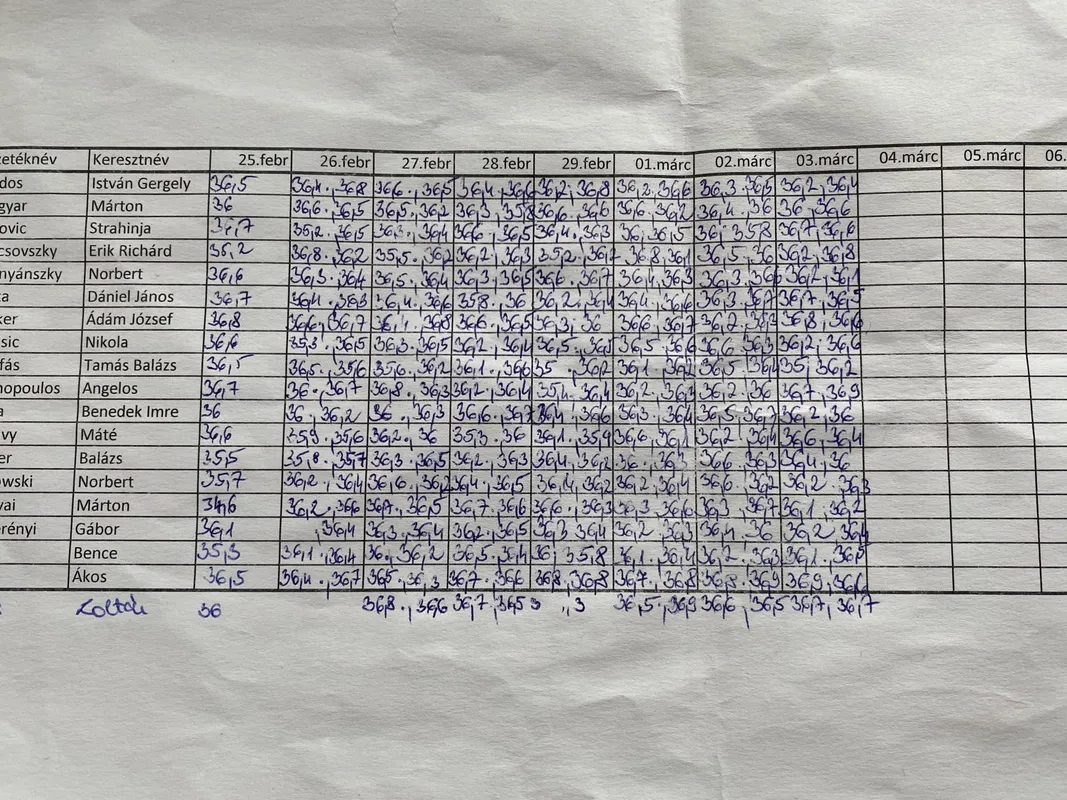 etéknév Keresztnév 25.febr 26.febr 27.febr 28.febr 29.febr 01.márc 02.márc 03.márc 04.márc 05.márc 06.
dos István Gergely 36,5 36,4 ., 36,8 36,6 ., 36,5 36,4 ., 36,6 36,2 ., 36,8 36,2 . 36,6 36,3 . 36,5 36,2 , 36,4
gyar Márton 36 36,6 . 36,5 36,5 ., 36,2 36,3 , 35,8 36,6 . 36,6 36,6 , 36,2 36,4 . 36 36 , 36,6
ovic Strahinja 36,7 35,2 . 36,5 36,3 ., 36,4 36,6 . 36,5 36,4 . 36,3 36 , 36,5 36 . 35,8 36,7 , 36,6
csovszky Erik Richárd 35,2 36,8 . 36,2 35,5 . 36,2 36,2 , 36,3 35,2 . 36,7 36,8 , 36,1 36,5 . 36 36,2 , 36,8
nyánszky Norbert 36,6 36,3 . 36,4 36,5 ., 36,4 36,3 ., 36,5 36,6 . 36,7 36,4 , 36,3 36,3 . 36,6 36,2 , 36,1
a Dániel János 36,7 36,4 . 36,3 36,4 . 36,6 35,8 . 36 36,2 , 36,4 36,4 , 36,6 36,3 . 36,7 36,7 , 36,5
ker Ádám József 36,8 36,6 , 36,7 36,1 . 36,8 36,6 . 36,5 36,3 , 36 36,6 , 36,7 36,2 . 36,3 36,8 , 36,6
sic Nikola 36,6 35,3 . 36,5 36,3 . 36,5 36,2 , 36,4 36,5 . 36,5 36,5 , 36,6 36,6 . 36,3 36,2 , 36,6
fás Tamás Balázs 36,5 36,5 . 35,6 35,6 . 36,2 36,1 . 36,6 35 . 36,2 36,1 , 36,2 36,5 , 36,4 35 , 36,2
nopoulos Angelos 36,7 36 . 36,7 36,8 . 36,3 36,2 , 36,4 35,4 . 36,4 36,2 . 36,3 36,2 . 36 36,7 , 36,9
a Benedek Imre 36 36 . 36,2 36 . 36,3 36,6 . 36,7 36,4 . 36,6 36,3 . 36,4 36,5 , 36,7 36,2 , 36
vy Máté 36,6 35,9 . 35,6 36,2 . 36 35,3 . 36 36,1 . 35,9 36,6 , 36,1 36,2 . 36,4 36,6 , 36,4
er Balázs 35,5 35,8 . 35,7 36,3 ., 36,5 36,2 . 36,3 36,4 , 36,2 36 . 36,6 . 36,3 36,4 , 36
wski Norbert 35,7 36,2 . 36,4 36,6 . 36,2 36,4 ., 36,5 36,4 , 36,2 36,2 , 36,4 36,6 . 36,2 36,2 . 36,3
vai Márton 34,6 36,2 , 36,6 36,7 . 36,5 36,7 . 36,6 36,6 . 36,3 36,3 . 36,6 36,3 . 36,7 36,1 , 36,2
erényi Gábor 36,1 , 36,4 36,3 ., 36,4 36,2 . 36,5 36,3 36,4 36,2 , 36,3 36,4 . 36 36,2 , 36,4
Bence 35,3 36,1 . 36,4 36 ., 36,2 36,5 . 36,4 36 . 35,8 36,1 . 36,4 36,2 . 36,3 36,1 . 36,5
Ákos 36,5 36,4 . , 36,7 36,5 . 36,3 36,7 . , 36,6 36,8 . , 36,8 36,7 . , 36,8 36,8 . 36,9 36,9 , 36,6
Zoltán 36 36,8 . , 36,6 36,7 . , 36,5 3 . , 3 36,5 . , 36,9 36,6 , 36,5 36,7 , 36,7